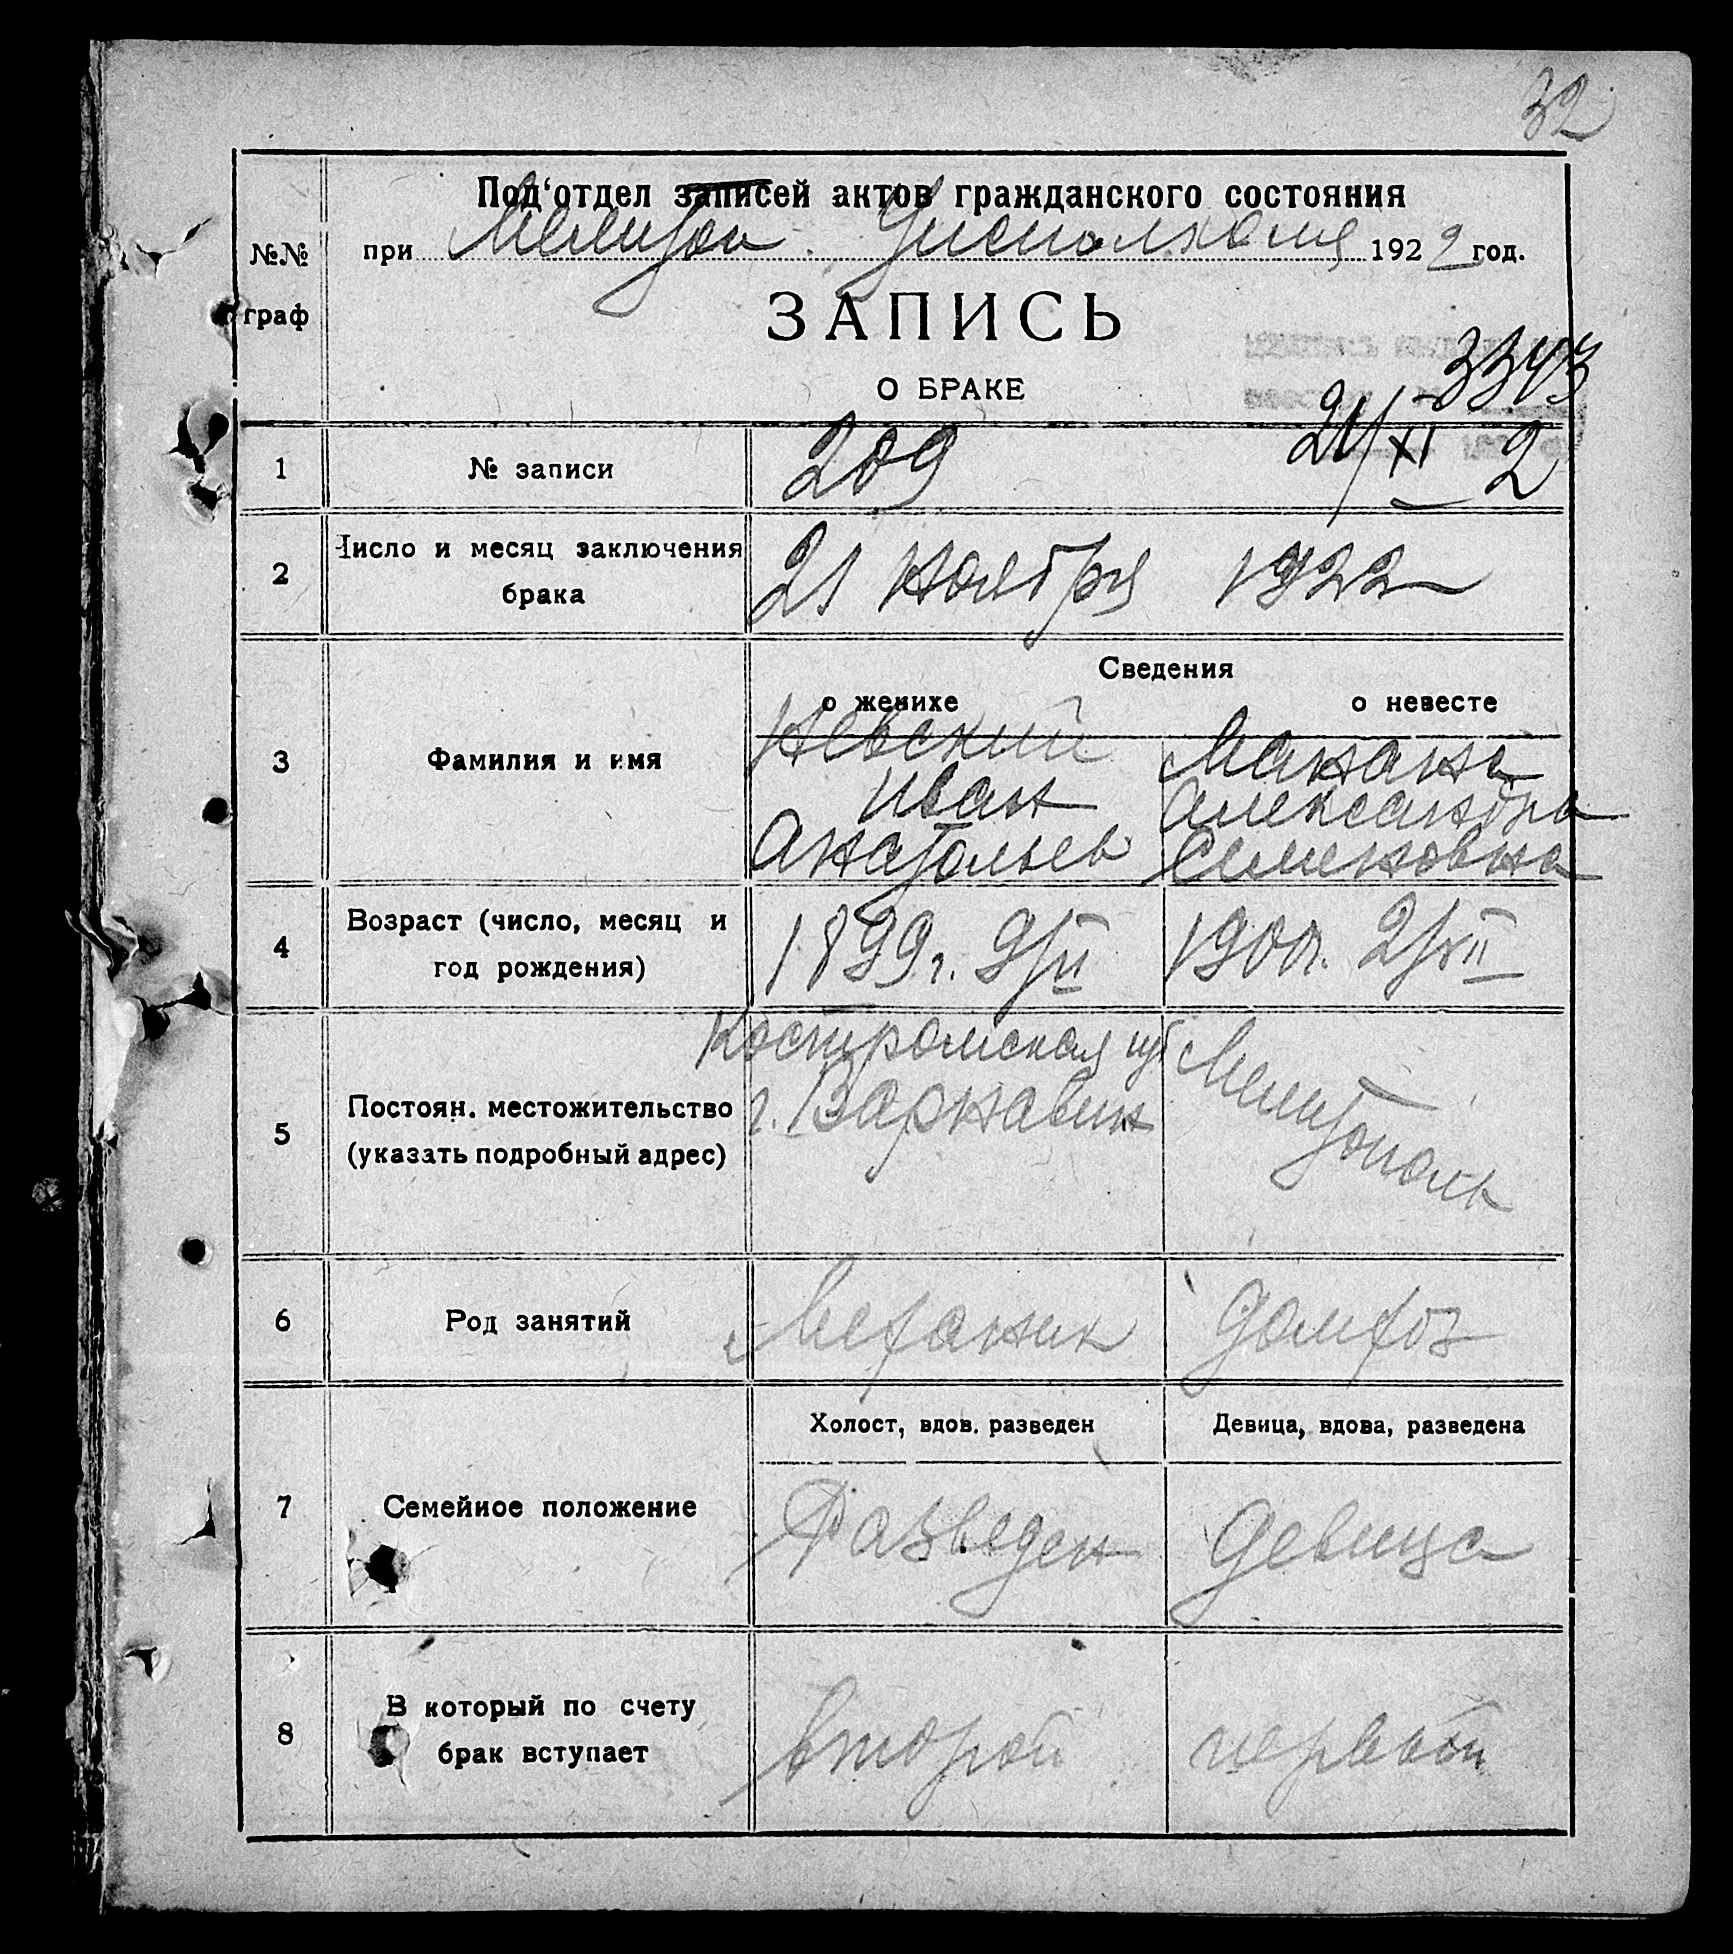 32
Под'отдел записей актов гражданского состояния
при Мелитоп. Уисполкома 1922 год.
№№
граф
ЗАПИСЬ
О БРАКЕ
3343
21/XI 2
1 № записи 209
2 Число и месяц заключения брака 21 Ноября 1922
Сведения
о женихе о невесте
3 Фамилия и имя
Невский
Иван
Анатольев
Александра
Семеновна
4 Возраст (число, месяц и
год рождения)
1899 г. 9/II 1900 г.
5 Постоян. местожительство
(указать подробный адрес)
Костромская губ
г. Варнавин
Мелитополь
6 Род занятий Механик Домхоз
Холост, вдов. разведен Девица, вдова, разведена
7 Семейное положение Разведен Девица
8 В который по счету
брак вступает
второй первый